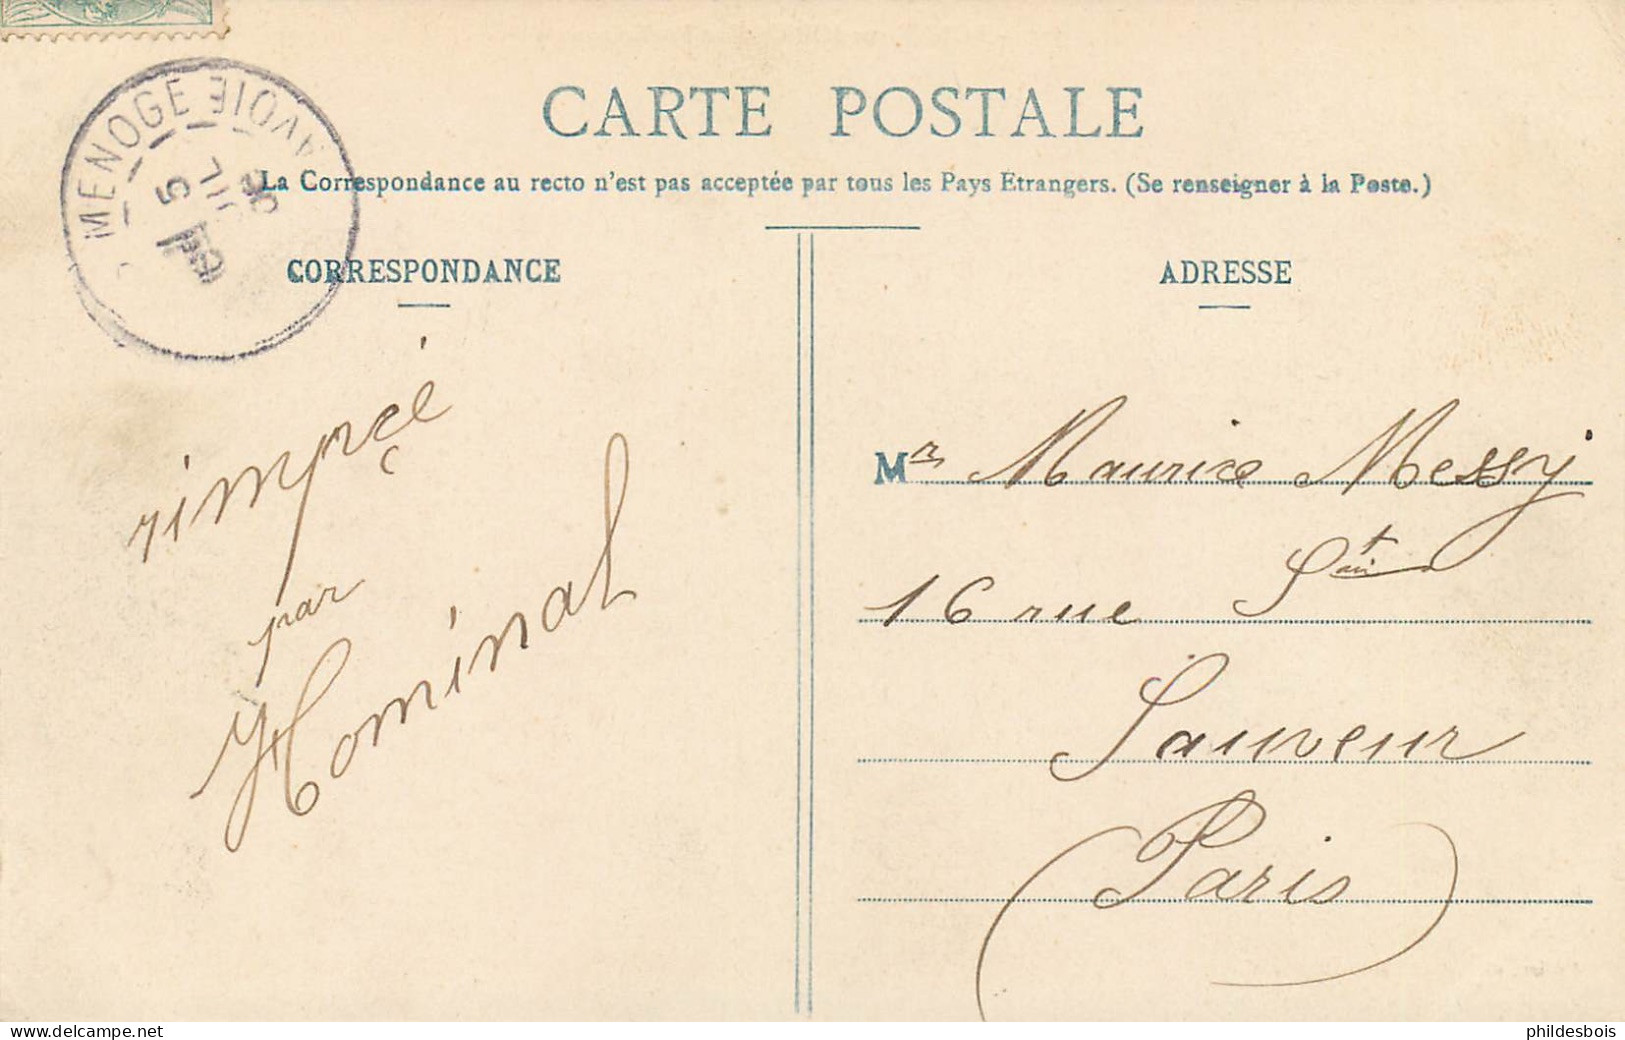 CARTE POSTALE
La Correspondance au recto n'est pas acceptée par tous les Pays Etrangers. (Se renseigner à la Poste.)
MENOGE AVOIE
5
CORRESPONDANCE
ADRESSE
par
Hominal
Mr Maurice Messy
16 rue St
Sauveur
Paris
www.delcampe.net
phildesbois